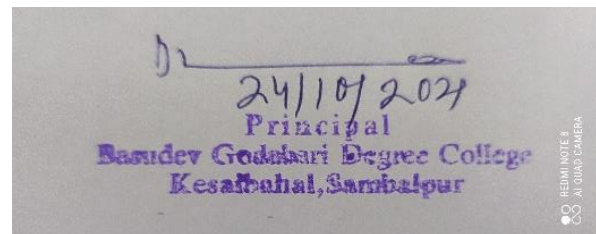 24/10/2021
Principal
Basudev Godabari Degree College
Kesaibahal, Sambalpur
REDMI NOTE 8
AI QUAD CAMERA